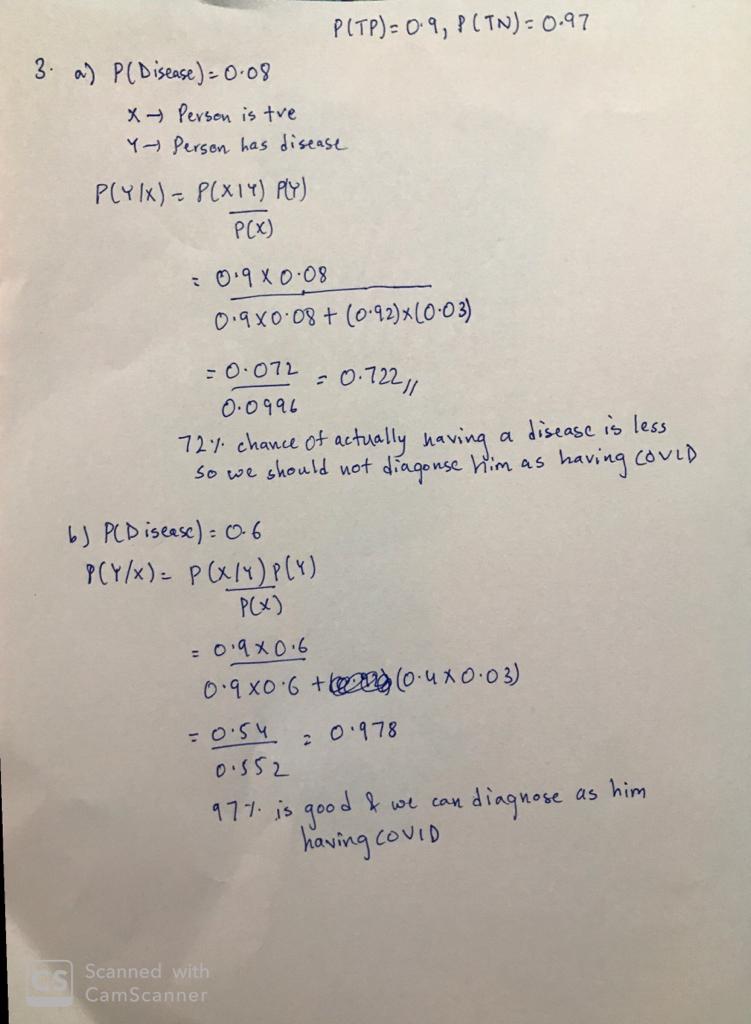 P(TP)= 0.9, P(TN)= 0.97
3. a) P(Disease)= 0.08
X → Person is +ve
Y → Person has disease
P(Y/X) = P(X|Y) P(Y)
P(X)
= 0.9 X 0.08
0.9 X 0.08 + (0.92)x(0.03)
= 0.072 = 0.722,,
0.0996
72% chance of actually having a disease is less
so we should not diagonse him as having COVID
b) P(Disease) = 0.6
P(Y/X) = P(X/Y) P(Y)
P(X)
= 0.9 X 0.6
0.9 X 0.6 + (0.4 X 0.03)
= 0.54 = 0.978
0.552
97% is good & we can diagnose as him
having COVID
CS Scanned with
CamScanner